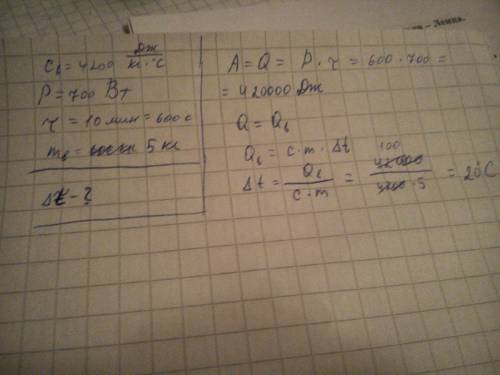 Cв = 4200 Дж/кг·°C
P = 700 Вт
τ = 10 мин = 600 с
mв = 5 кг
Δt - ?
A = Q = P · τ = 600 · 700 =
= 420000 Дж
Q = Qв
Qв = c · m · Δt
Δt = Qв/c·m = 100/5 = 20°C